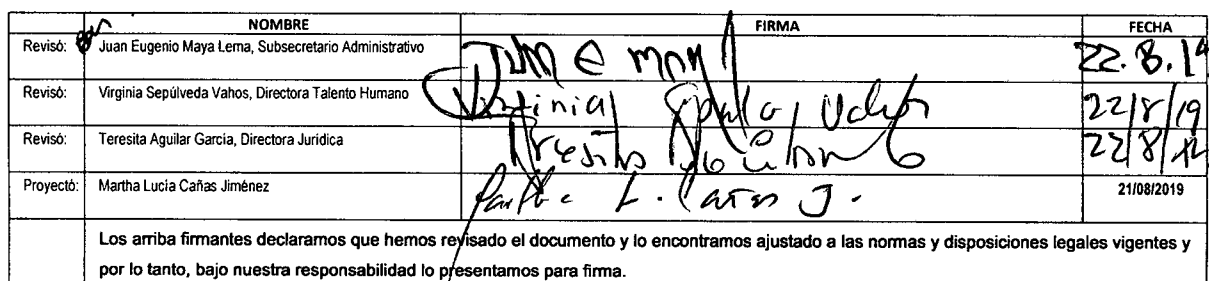 NOMBRE FIRMA FECHA
Revisó: Juan Eugenio Maya Lema, Subsecretario Administrativo Juan e Maya L 22.8.19
Revisó: Virginia Sepúlveda Vahos, Directora Talento Humano Virginia Vahos 22/8/19
Revisó: Teresita Aguilar García, Directora Jurídica Teresita 22/8/19
Proyectó: Martha Lucía Cañas Jiménez Martha L. Cañas J. 21/08/2019
Los arriba firmantes declaramos que hemos revisado el documento y lo encontramos ajustado a las normas y disposiciones legales vigentes y
por lo tanto, bajo nuestra responsabilidad lo presentamos para firma.